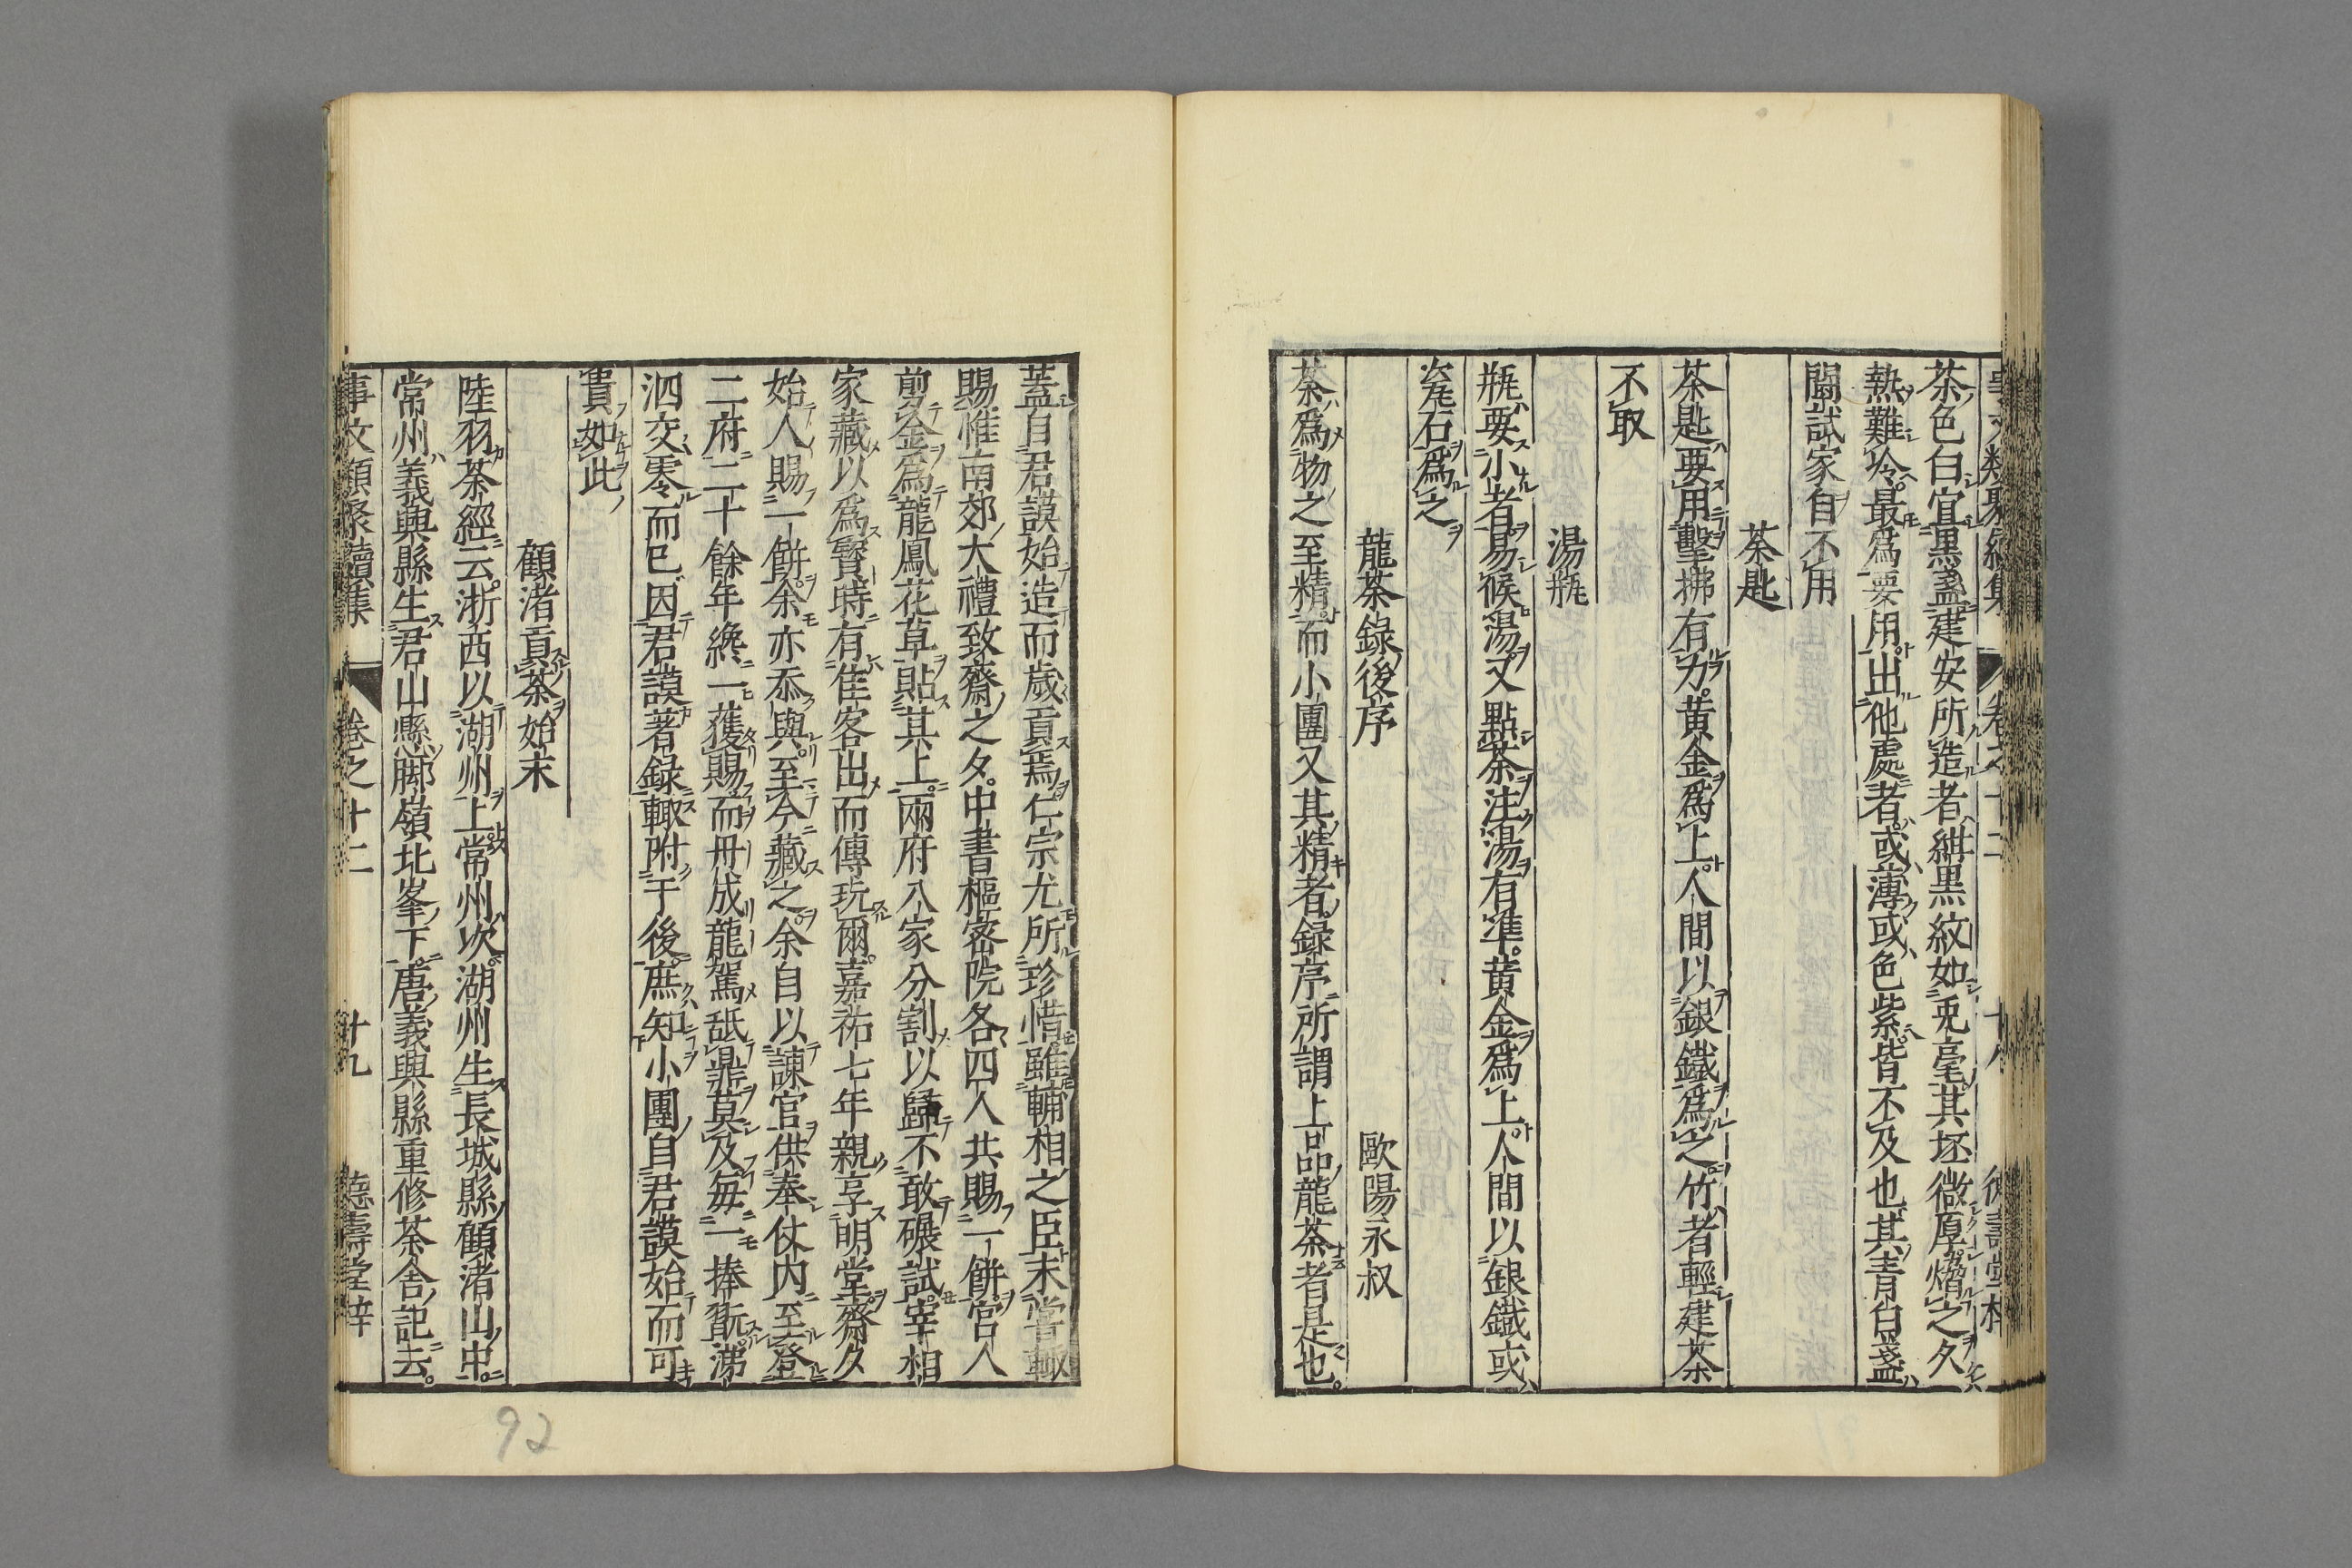 茶色白宜黒盞建安所造者紺黒紋如兎毫其坯微厚熁之久
熱難冷最爲要用出他處者或薄或色紫皆不及也其青白盞
闘試家自不用
茶匙
茶匙要用擊拂有力黄金爲上人間以銀鐵爲之竹者輕建茶
不取
湯瓶
瓶要小者易候湯又點茶注湯有準黄金爲上人間以銀鐵或
瓷石爲之
龍茶錄後序 歐陽永叔
茶爲物之至精而小團又其精者録序所謂上品龍茶者是也
蓋自君謨始造而歲貢焉仁宗尤所珍惜雖輔相之臣未嘗輙
賜惟南郊大禮致齋之夕中書樞密院各四人共賜一餅宮人
剪金爲龍鳳花草貼其上兩府八家分割以歸不敢碾試宰相
家藏以爲寶時有佳客出而傳玩爾嘉祐七年親享明堂齋夕
始人賜一餅余亦忝與至今藏之余自以諫官供奉仗内至登
二府二十餘年纔一獲賜而丹成龍駕舐鼎莫及每一捧翫涕
泗交零而已因君謨著録輙附于後庶知小團自君謨始而可
貴如此
顧渚貢茶始末
陸羽茶經云浙西以湖州上常州次湖州生長城縣顧渚山中
常州義興縣生君山懸脚嶺北峯下唐義興縣重修茶舍記云
事文類聚續集 卷之十二 十九 德壽堂梓